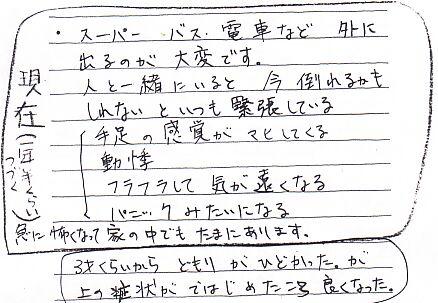 ・ スーパー バス・電車など 外に
出るのが 大変です。
人と一緒にいると 今 倒れるかも
しれないといつも緊張している
手足の感覚がマヒしてくる
動悸
フラフラして 気が遠くなる
パニックみたいになる
急に怖くなって家の中でもたまにあります。
現在(一年半くらいつづく)
3才くらいから どもりがひどかった。が
上の症状がではじめたころ良くなった。